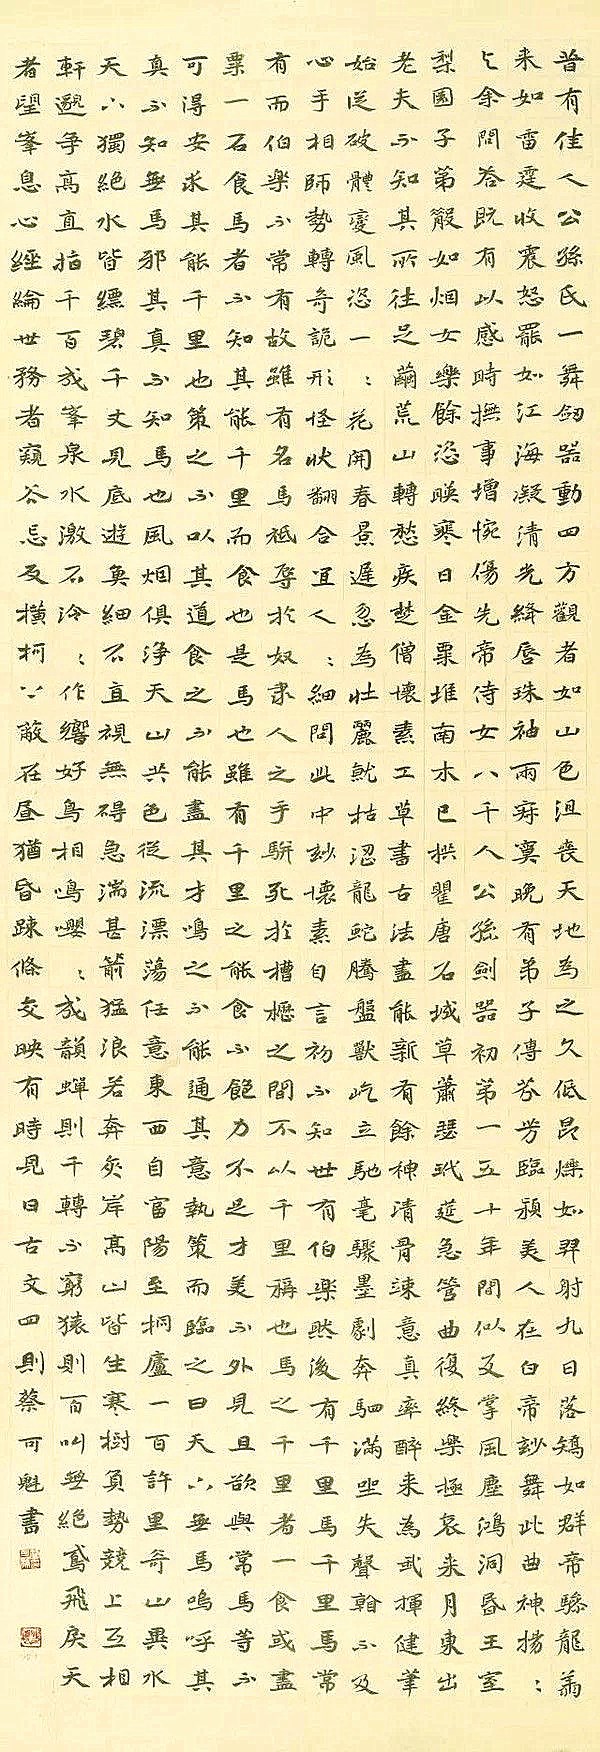 昔有佳人公孫氏一舞劒器動四方觀者如山色沮喪天地為之久低昂㸌如羿射九日落矯如群帝驂龍翔
来如雷霆收震怒罷如江海凝清光絳唇珠袖兩寂寞晚有弟子傳芬芳臨潁美人在白帝妙舞此曲神揚:
与余問答既有以感時撫事增惋傷先帝侍女八千人公孫劍器初第一五十年間似反掌風塵鴻洞昏王室
梨園子弟散如烟女樂餘姿暎寒日金粟堆南木已拱瞿唐石城草蕭瑟玳筵急管曲復終樂極哀来月東出
老夫不知其所往足繭荒山轉愁疾楚僧懷素工草書古法盡能新有餘神清骨竦意真率醉来為我揮健筆
始從破體變風姿一:花開春景遲忽為壯麗就枯澀龍蛇騰盤獸屹立馳毫驟墨劇奔駟滿坐失聲看不及
心手相師勢轉奇詭形怪狀翻合宜人:細問此中妙懷素自言初不知世有伯樂然後有千里馬千里馬常
有而伯樂不常有故雖有名馬祗辱於奴隶人之手駢死於槽櫪之間不以千里稱也馬之千里者一食或盡
粟一石食馬者不知其能千里而食也是馬也雖有千里之能食不飽力不足才美不外見且欲與常馬等不
可得安求其能千里也策之不以其道食之不能盡其才鳴之不能通其意執策而臨之曰天下無馬嗚呼其
真不知無馬邪其真不知馬也風烟俱浄天山共色從流漂蕩任意東西自富陽至桐廬一百許里奇山異水
天下獨絕水皆縹碧千丈見底遊魚細石直視無碍急湍甚箭猛浪若奔夾岸高山皆生寒樹負勢競上互相
軒邈争高直指千百成峯泉水激石泠:作響好鳥相鳴嚶:成韻蟬則千轉不窮猿則百叫無絕鳶飛戾天
者望峯息心經綸世務者窺谷忘反橫柯上蔽在昼猶昏踈條交映有時見日古文四則蔡可魁書